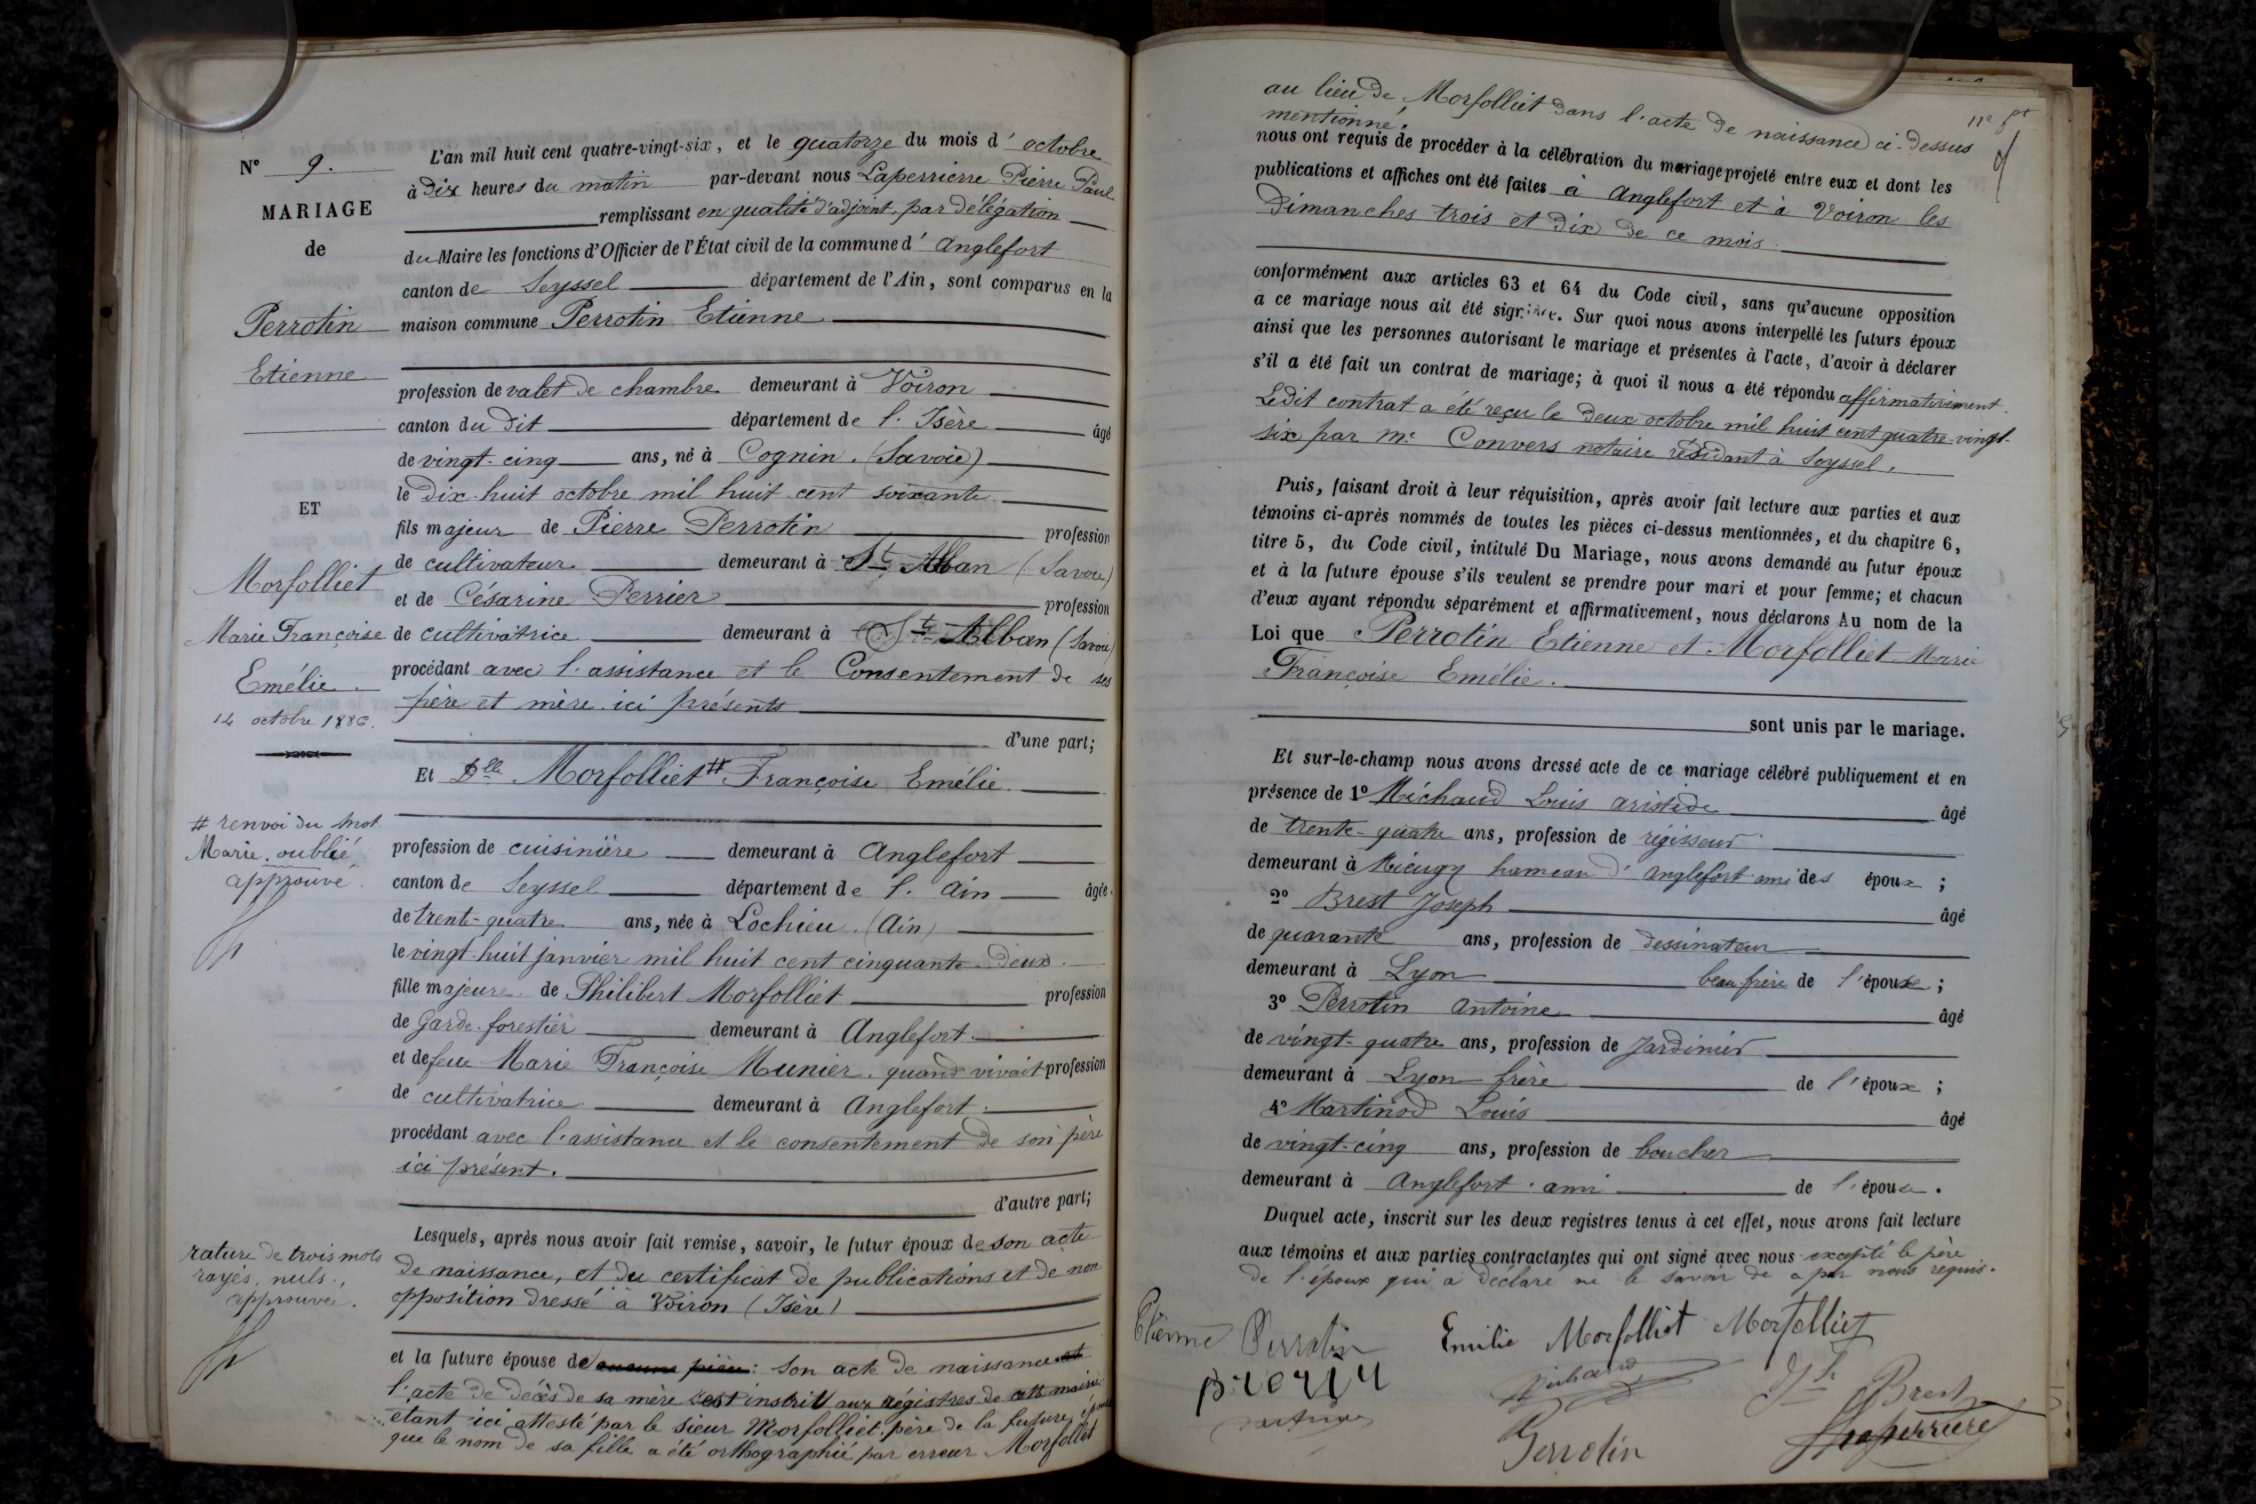 N° 9.
MARIAGE
de
Perrotin
Etienne
ET
Morfolliet
Marie Françoise
Emélie.
14 octobre 1886.
# renvoi du mot
Marie. oublié
approuvé.
rature de trois mots
rayés. nuls.,
approuvée.
L'an mil huit cent quatre-vingt-six, et le quatorze du mois d' octobre
à dix heures du matin par-devant nous Laperrierre Pierre Paul
remplissant en qualité d'adjoint, par délégation
du Maire les fonctions d'Officier de l'État civil de la commune d' Anglefort
canton de Seyssel département de l'Ain, sont comparus en la
maison commune Perrotin Etienne
profession de valet de chambre demeurant à Voiron
canton du dit département de l'Isère âgé
de vingt-cinq ans, né à Cognin. (Savoie)
le dix-huit octobre mil huit cent soixante
fils majeur de Pierre Perrotin profession
de cultivateur demeurant à St Alban (Savoie)
et de Césarine Perrier profession
de cultivatrice demeurant à St Alban (Savoie)
procédant avec l'assistance et le Consentement de ses
père et mère ici présents
d'une part;
Et Dlle Morfolliet # Françoise Emélie
profession de cuisinière demeurant à Anglefort
canton de Seyssel département de l'Ain âgée
de trente-quatre ans, née à Lochieu (Ain)
le vingt-huit janvier mil huit cent cinquante-deux
fille majeure de Philibert Morfolliet profession
de Garde-forestier demeurant à Anglefort.
et de feue Marie Françoise Munier. quand vivait profession
de cultivatrice demeurant à Anglefort.
procédant avec l'assistance et le consentement de son père
ici présent.
d'autre part;
Lesquels, après nous avoir fait remise, savoir, le futur époux de son acte
de naissance, et du certificat de publications et de non
opposition dressé à Voiron (Isère)
et la future épouse de aucune pièce: son acte de naissance et
l'acte de décès de sa mère est inscrit aux régistres de cette mairie
étant ici attesté par le sieur Morfolliet père de la future épouse
que le nom de sa fille a été orthographié par erreur Morfollet
au lieu de Morfolliet dans l'acte de naissance ci-dessus
mentionné.
11e
nous ont requis de procéder à la célébration du mariage projeté entre eux et dont les
publications et affiches ont été faites à Anglefort et à Voiron les
Dimanches trois et dix de ce mois
conformément aux articles 63 et 64 du Code civil, sans qu'aucune opposition
a ce mariage nous ait été signifiée. Sur quoi nous avons interpellé les futurs époux
ainsi que les personnes autorisant le mariage et présentes à l'acte, d'avoir à déclarer
s'il a été fait un contrat de mariage; à quoi il nous a été répondu affirmativement.
Ledit contrat a été reçu le deux octobre mil huit cent quatre-vingt-
six par Me Convers notaire résidant à Seyssel.
Puis, faisant droit à leur réquisition, après avoir fait lecture aux parties et aux
témoins ci-après nommés de toutes les pièces ci-dessus mentionnées, et du chapitre 6,
titre 5, du Code civil, intitulé Du Mariage, nous avons demandé au futur époux
et à la future épouse s'ils veulent se prendre pour mari et pour femme; et chacun
d'eux ayant répondu séparément et affirmativement, nous déclarons Au nom de la
Loi que Perrotin Etienne et Morfolliet Marie
Françoise Emélie.
sont unis par le mariage.
Et sur-le-champ nous avons dressé acte de ce mariage célébré publiquement et en
présence de 1° Michaud Louis Aristide âgé
de trente-quatre ans, profession de régisseur
demeurant à Mieugy hameau d'Anglefort ami des époux ;
2° Brest Joseph âgé
de quarante ans, profession de dessinateur
demeurant à Lyon beau-frère de l'épouse ;
3° Perrotin Antoine âgé
de vingt-quatre ans, profession de Jardinier
demeurant à Lyon frère de l'époux ;
4° Martinod Louis âgé
de vingt-cinq ans, profession de boucher
demeurant à Anglefort. ami de l'épouse.
Duquel acte, inscrit sur les deux registres tenus à cet effet, nous avons fait lecture
aux témoins et aux parties contractantes qui ont signé avec nous excepté le père
de l'époux qui a déclaré ne le savoir de a par nous requis.
Etienne Perrotin Emilie Morfolliet Morfolliet
Michaud Jh Brest
Perrotin Laperriere